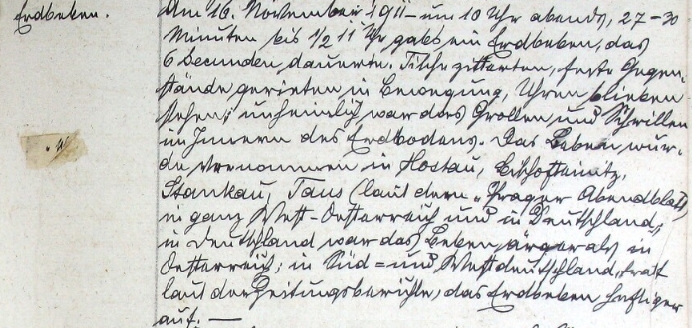 Erdbeben.
Am 16. November 1911 um 10 Uhr abends, 27-30
Minuten bis 1/2 11 Uhr gabs ein Erdbeben, das
6 Secunden dauerte. Tische zitterten, feste Gegen-
stände gerieten in Bewegung, Uhren blieben
stehen; unheimlich war das Grollen und Schrillen
im Innern des Erdbodens. Das Beben wur-
de vernommen in Hostau, Bischofteinitz,
Stankau, Taus (laut dem "Prager Abendblatt")
in ganz West-Oesterreich und in Deutschland;
in Deutschland war das Beben ärger als in
Oesterreich; in Süd- und Westdeutschland, tratt
laut der Zeitungsberichte, das Erdbeben heftiger
auf. —